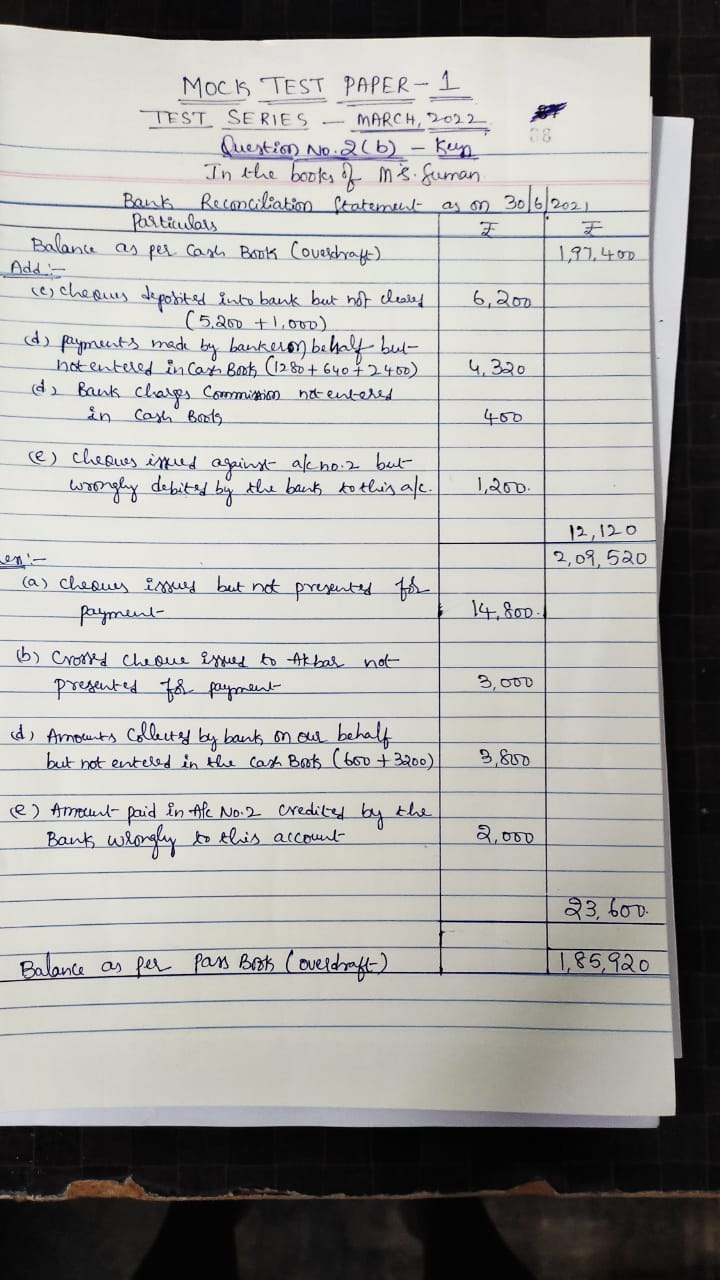 MOCK TEST PAPER - 1
TEST SERIES - MARCH, 2022
38
Question No. 2(b) - Key
In the books of M/S. Suman
Bank Reconciliation Statement as on 30/6/2021
Particulars ₹ ₹
Balance as per Cash Book (overdraft) 1,97,400
Add:-
(c) cheques deposited into bank but not cleared 6,200
(5,200 + 1,000)
(d) payments made by banker on behalf but
not entered in Cash Book (1280 + 640 + 2400) 4,320
(d) Bank charges Commission not entered
in Cash Book 400
(e) cheques issued against a/c no. 2 but
wrongly debited by the bank to this a/c. 1,200.
12,120
2,09,520
(a) cheques issued but not presented for
payment 14,800.
(b) Crossed cheque issued to Akbar not
presented for payment 3,000
(d) Amounts Collected by bank on our behalf
but not entered in the Cash Book (600 + 3200) 3,800
(e) Amount paid in A/c No. 2 credited by the
Bank wrongly to this account 2,000
23,600.
Balance as per Pass Book (overdraft) 1,85,920